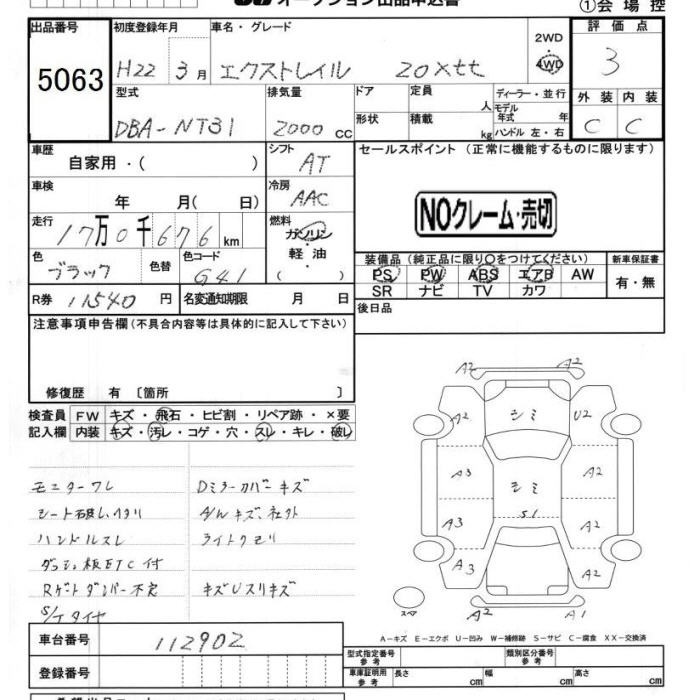 オークション出品申込書
①会場控
出品番号
5063
初度登録年月
H22 3月
車名・グレード
エクストレイル 20xtt
2WD
4WD
評価点
3
型式
DBA-NT31
排気量
2000 cc
ドア
定員 人
ディーラー・並行
モデル年式 年
形状
積載 kg
ハンドル 左・右
外装 内装
C C
車歴
自家用・( )
シフト
AT
セールスポイント(正常に機能するものに限ります)
車検
年 月( 日)
冷房
AAC
NOクレーム・売切
走行
17万0千676km
燃料
ガソリン
軽油
( )
色
ブラック
色替
色コード
G41
装備品(純正品に限り○をつけてください)
新車保証書
PS PW ABS エアB AW
SR ナビ TV カワ
有・無
R券 11540円
名変通知期限 月 日
後日品
注意事項申告欄(不具合内容等は具体的に記入して下さい)
修復歴 有〔箇所 〕
検査員記入欄
FW キズ・飛石・ヒビ割・リペア跡・×要
内装 キズ・汚レ・コゲ・穴・スレ・キレ・破レ
モニターワレ Dミラーカバーキズ
シート破レ、ヘタリ A/Wキズ、
ハンドルスレ ライトクモリ
ダッシュ板ETC付
Rゲートダンパー不良 キズUスリキズ
S/Tタイヤ
A2 A2
A2 シミ U2
A3 シミ A2
S1
A3 A2
A3 A2
A2 A1
スペア
A-キズ E-エクボ U-凹み W-補修跡 S-サビ C-腐食 XX-交換済
車台番号
112902
型式指定番号 参考
類別区分番号 参考
登録番号
車庫証明用 参考
長さ cm
幅 cm
高さ cm